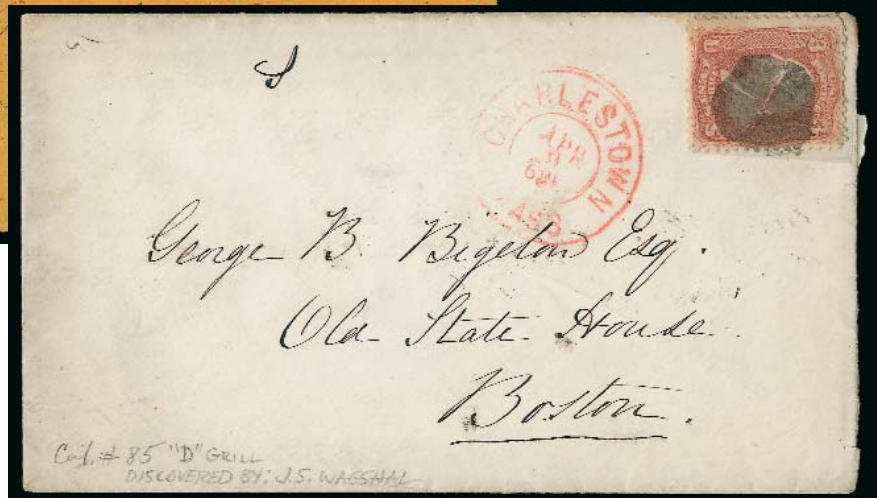 CHARLESTOWN
APR
8
68
MASS
George B. Bigelow Esq.
Old State House
Boston.
Cat. # 85 "D" GRILL
DISCOVERED BY: J.S. WAGSHAL